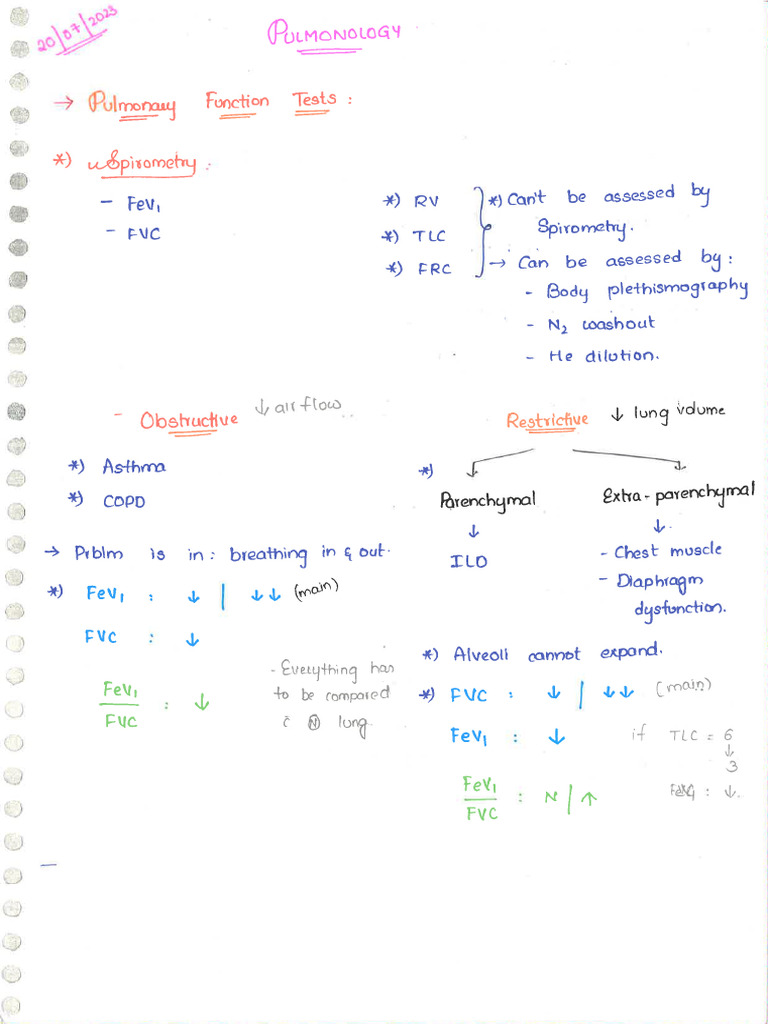 20/07/2023
PULMONOLOGY
→ Pulmonary Function Tests :
*) Spirometry :
- FeV₁
- FVC
*) RV
*) TLC
*) FRC
*) Can't be assessed by
Spirometry.
→ Can be assessed by :
- Body plethismography
- N₂ washout
- He dilution.
- Obstructive ↓ air flow
*) Asthma
*) COPD
→ Prblm is in : breathing in & out.
*) FeV₁ : ↓ | ↓↓ (main)
FVC : ↓
FeV₁/FVC : ↓
- Everything has
to be compared
c̄ Ⓝ lung.
Restrictive ↓ lung volume
*)
Parenchymal
↓
ILD
Extra-parenchymal
↓
- Chest muscle
- Diaphragm
dysfunction.
*) Alveoli cannot expand.
*) FVC : ↓ | ↓↓ (main)
FeV₁ : ↓
FeV₁/FVC : N | ↑
if TLC = 6
↓
3
FeV₁ : ↓.